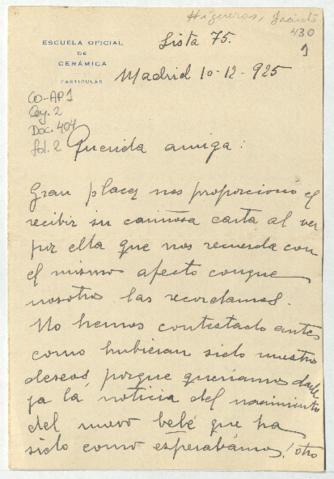 Higueras, Jacinto
430
1
ESCUELA OFICIAL
DE
CERÁMICA
PARTICULAR
Lista 75.
Madrid 10-12-925
CO-AP1
Caj. 2
Doc. 404
fol. 2
Querida amiga:
Gran placer nos proporcionó el
recibir su cariñosa carta al ver
por ella que nos recuerda con
el mismo afecto conque
nosotros las recordamos.
No hemos contestado antes
como hubieran sido nuestros
deseos, porque queríamos darle
ya la noticia del nacimiento
del nuevo bebé que ha
sido como esperabámos! otro